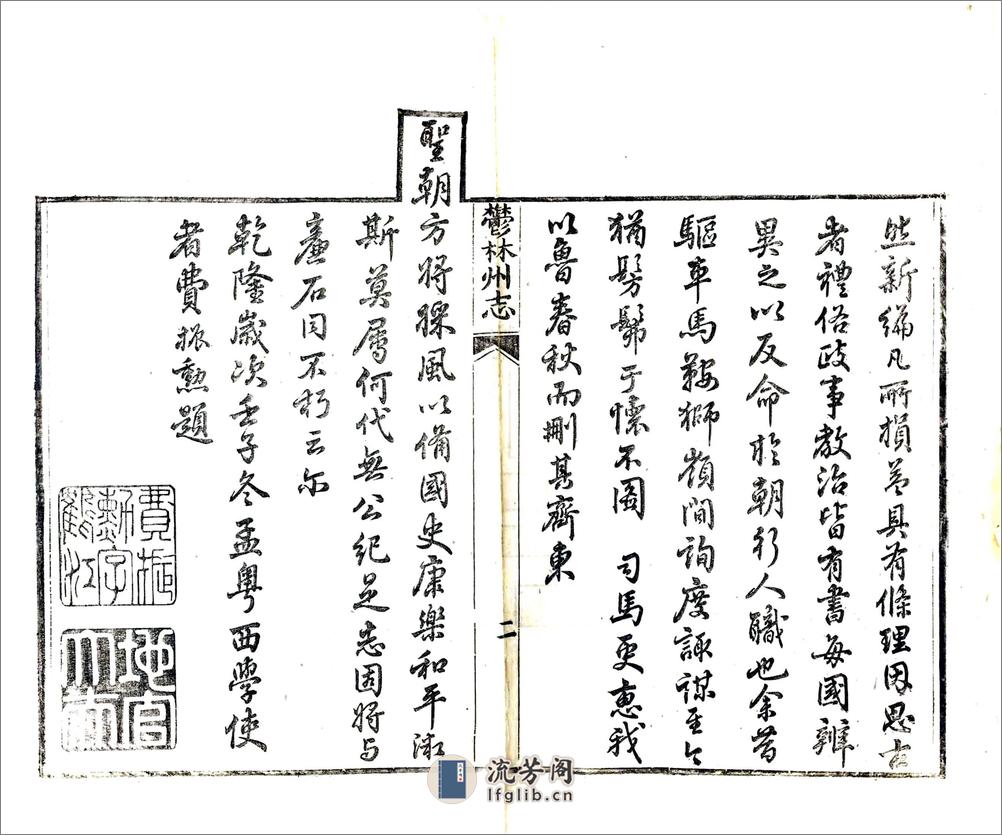 然新編凡所損益具有條理因思古
者禮俗政事教治皆有書每國辨
異之以反命於朝行人職也余昔
驅車馬鞍獅嶺間詢度諏謀至今
猶髣髴于懷不圖 司馬更惠我
以魯春秋而刪其齊東
鬱林州志
二
聖朝方將採風以備國史康樂和平澂
斯莫屬何代無公紀是志固將与
廉石同不朽云尔
乾隆歲次壬子冬孟粵西學使
者費振勳題
費振
勳字
鶴江
地官
大夫
流芳阁
lfglib.cn